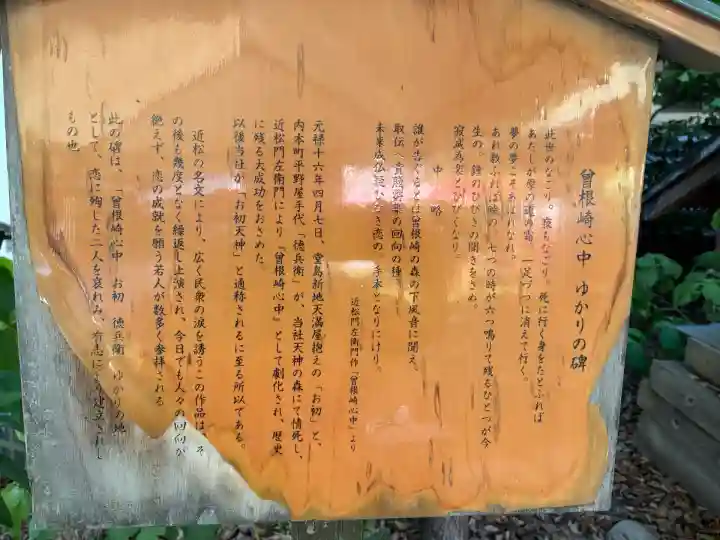 曾根崎心中 ゆかりの碑
此世のなごり。夜もなごり。死に行く身をたとふれば
あだしが原の道の霜。一足づつに消えて行く。
夢の夢こそあはれなれ。
あれ数ふれば暁の。七つの時が六つ鳴りて残るひとつが今
生の。鐘のひびきの聞きをさめ。
寂滅為楽とひびくなり。
中略
誰が告ぐるとは曾根崎の森の下風音に聞え。
取伝へ貴賤群集の回向の種。
未来成仏疑ひなき恋の。手本となりにけり。
近松門左衛門作「曾根崎心中」より
元禄十六年四月七日、堂島新地天満屋抱えの「お初」と、
内本町平野屋手代「徳兵衛」が、当社天神の森にて情死し、
近松門左衛門により『曾根崎心中』として劇化され、歴史
に残る大成功をおさめた。
以後当社が「お初天神」と通称されるに至る所以である。
近松の名文により、広く民衆の涙を誘うこの作品は、そ
の後も幾度となく繰返し上演され、今日でも人々の回向が
絶えず、恋の成就を願う若人が数多く参拝される
此の碑は、「曾根崎心中 お初 徳兵衛 ゆかりの地
として、恋に殉じた二人を哀れみ、有志により建立されし
もの也